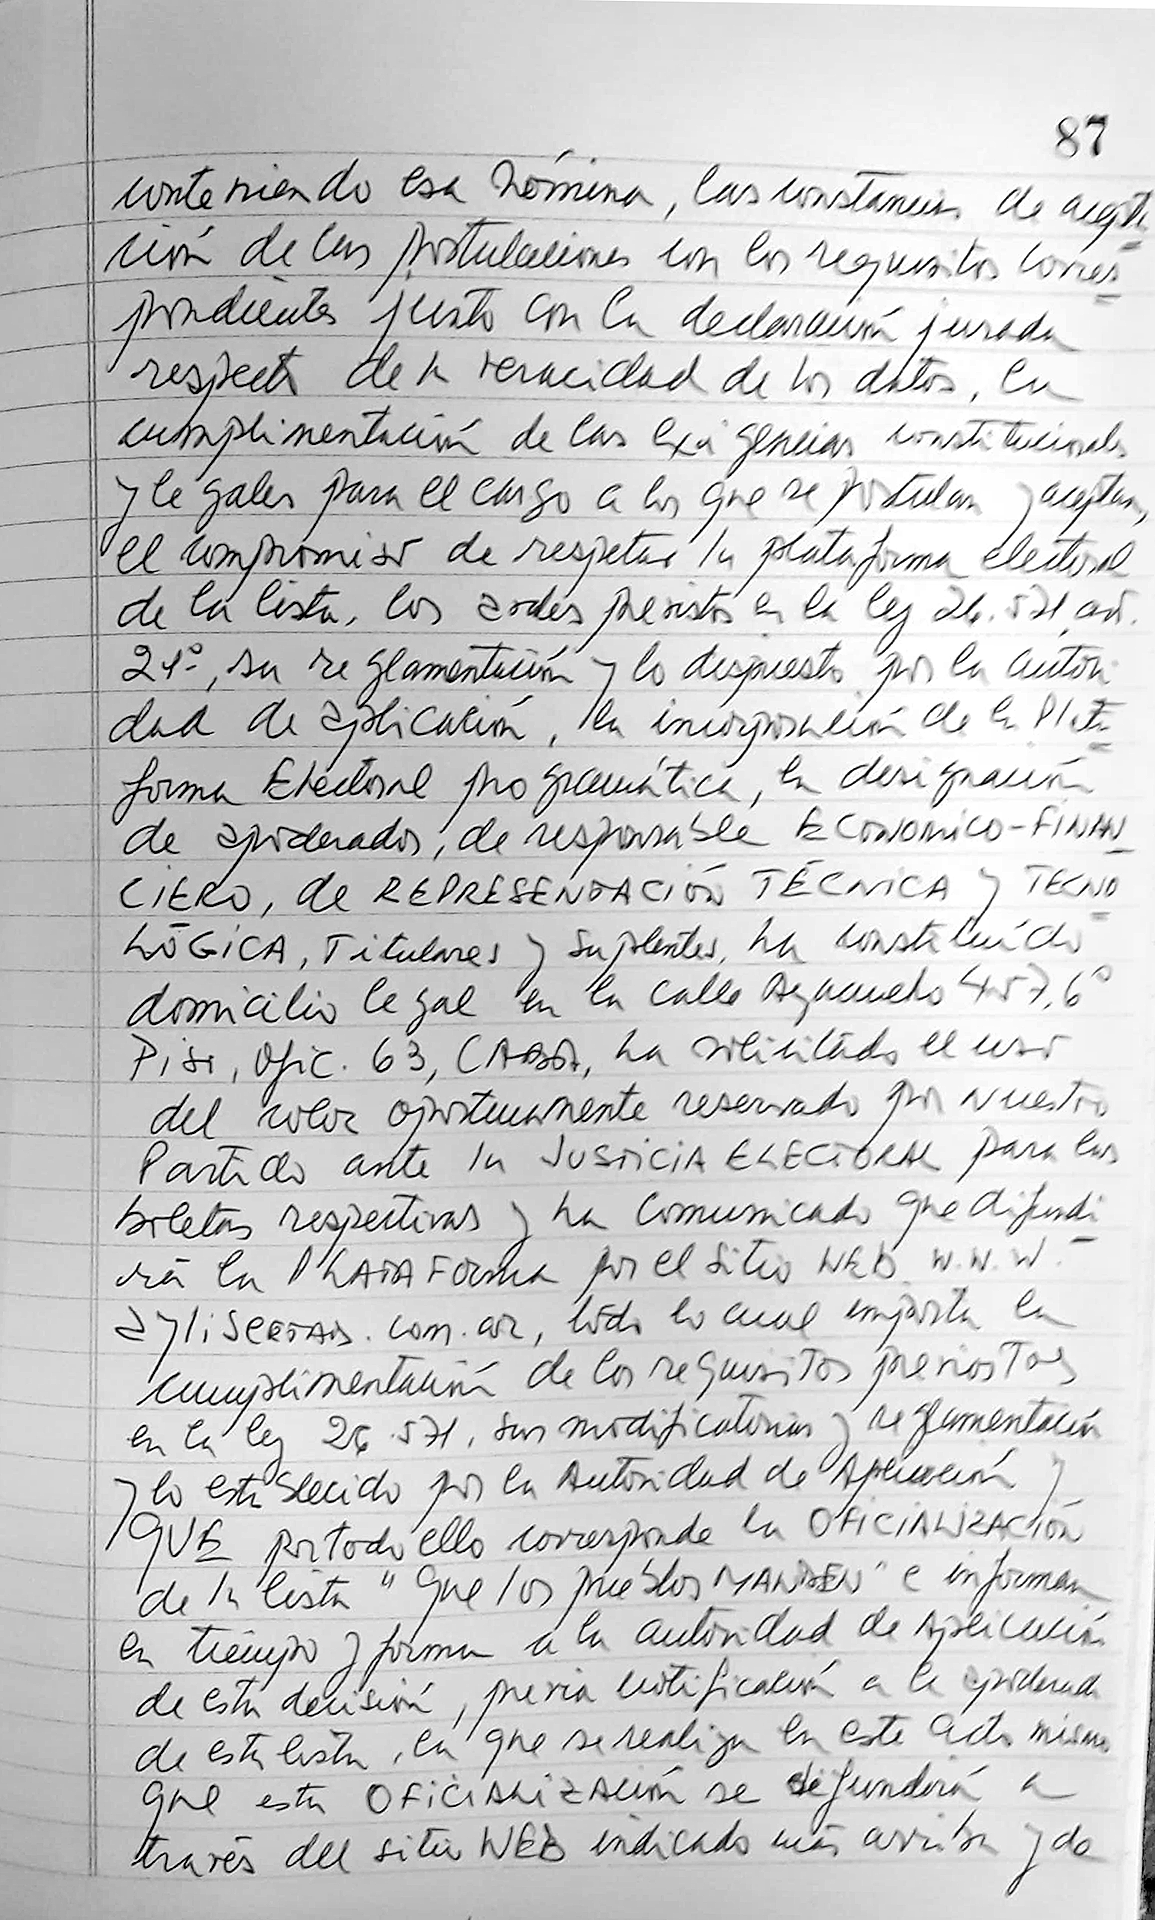 87
conteniendo esa nómina, las constancias de acepta
ción de las postulaciones con los requisitos corres
pondientes junto con la declaración jurada
respecto de la veracidad de los datos, la
cumplimentación de las exigencias constitucionales
y legales para el cargo a los que se postulan y aceptan,
el compromiso de respetar la plataforma electoral
de la lista, los previstos en la ley 26.571, art.
21º, su reglamentación y lo dispuesto por la autori
dad de aplicación, la incorporación de la Plata
forma Electoral programática, la designación
de apoderados, de responsable ECONOMICO-FINAN
CIERO, de REPRESENTACIÓN TÉCNICA y TECNO
LÓGICA, Titulares y Suplentes, ha constituído
domicilio legal en la calle Ayacucho 457, 6º
Piso, Ofic. 63, CABA, ha solicitado el uso
del color oportunamente reservado por nuestro
Partido ante la JUSTICIA ELECTORAL para las
boletas respectivas y ha comunicado que difundi
rá la PLATAFORMA por el sitio WEB W.W.W.
com.ar, todo lo cual importa la
cumplimentación de los requisitos previstos
en la ley 26.571, sus modificatorias y reglamentación
y lo establecido por la Autoridad de Aplicación y
QUE por todo ello corresponde la OFICIALIZACIÓN
de la lista "Que los pueblos MANDEN" e informar
en tiempo y forma a la autoridad de Aplicación
de esta decisión, previa notificación a la apoderada
de esta lista, la que se realiza en este acto mismo
que esta OFICIALIZACIÓN se difundirá a
través del sitio WEB indicado más arriba y de